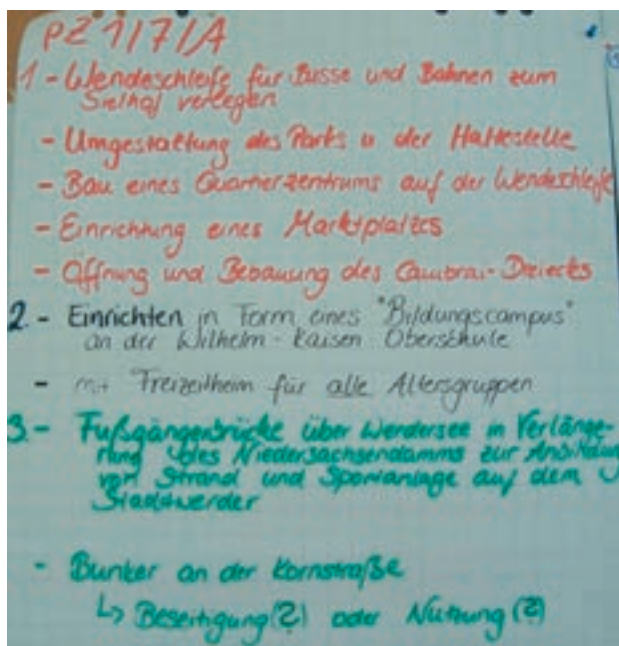 PZ 1/7/A
1 - Wendeschleife für Busse und Bahnen zum
Sielhof verlegen
- Umgestaltung des Parks u der Haltestelle
- Bau eines Quartierzentrums auf der Wendeschleife
- Einrichtung eines Marktplatzes
- Öffnung und Bebauung des Cambrai-Dreiecks
2. - Einrichten in Form eines "Bildungscampus"
an der Wilhelm-Kaisen Oberschule
- mit Freizeitheim für alle Altersgruppen
3. - Fußgängerbrücke über Werdersee in Verlänge-
rung des Niedersachsendamms zur Anbindung
von Strand und Sportanlage auf dem
Stadtwerder
- Bunker an der Kornstraße
↳ Beseitigung(?) oder Nutzung(?)